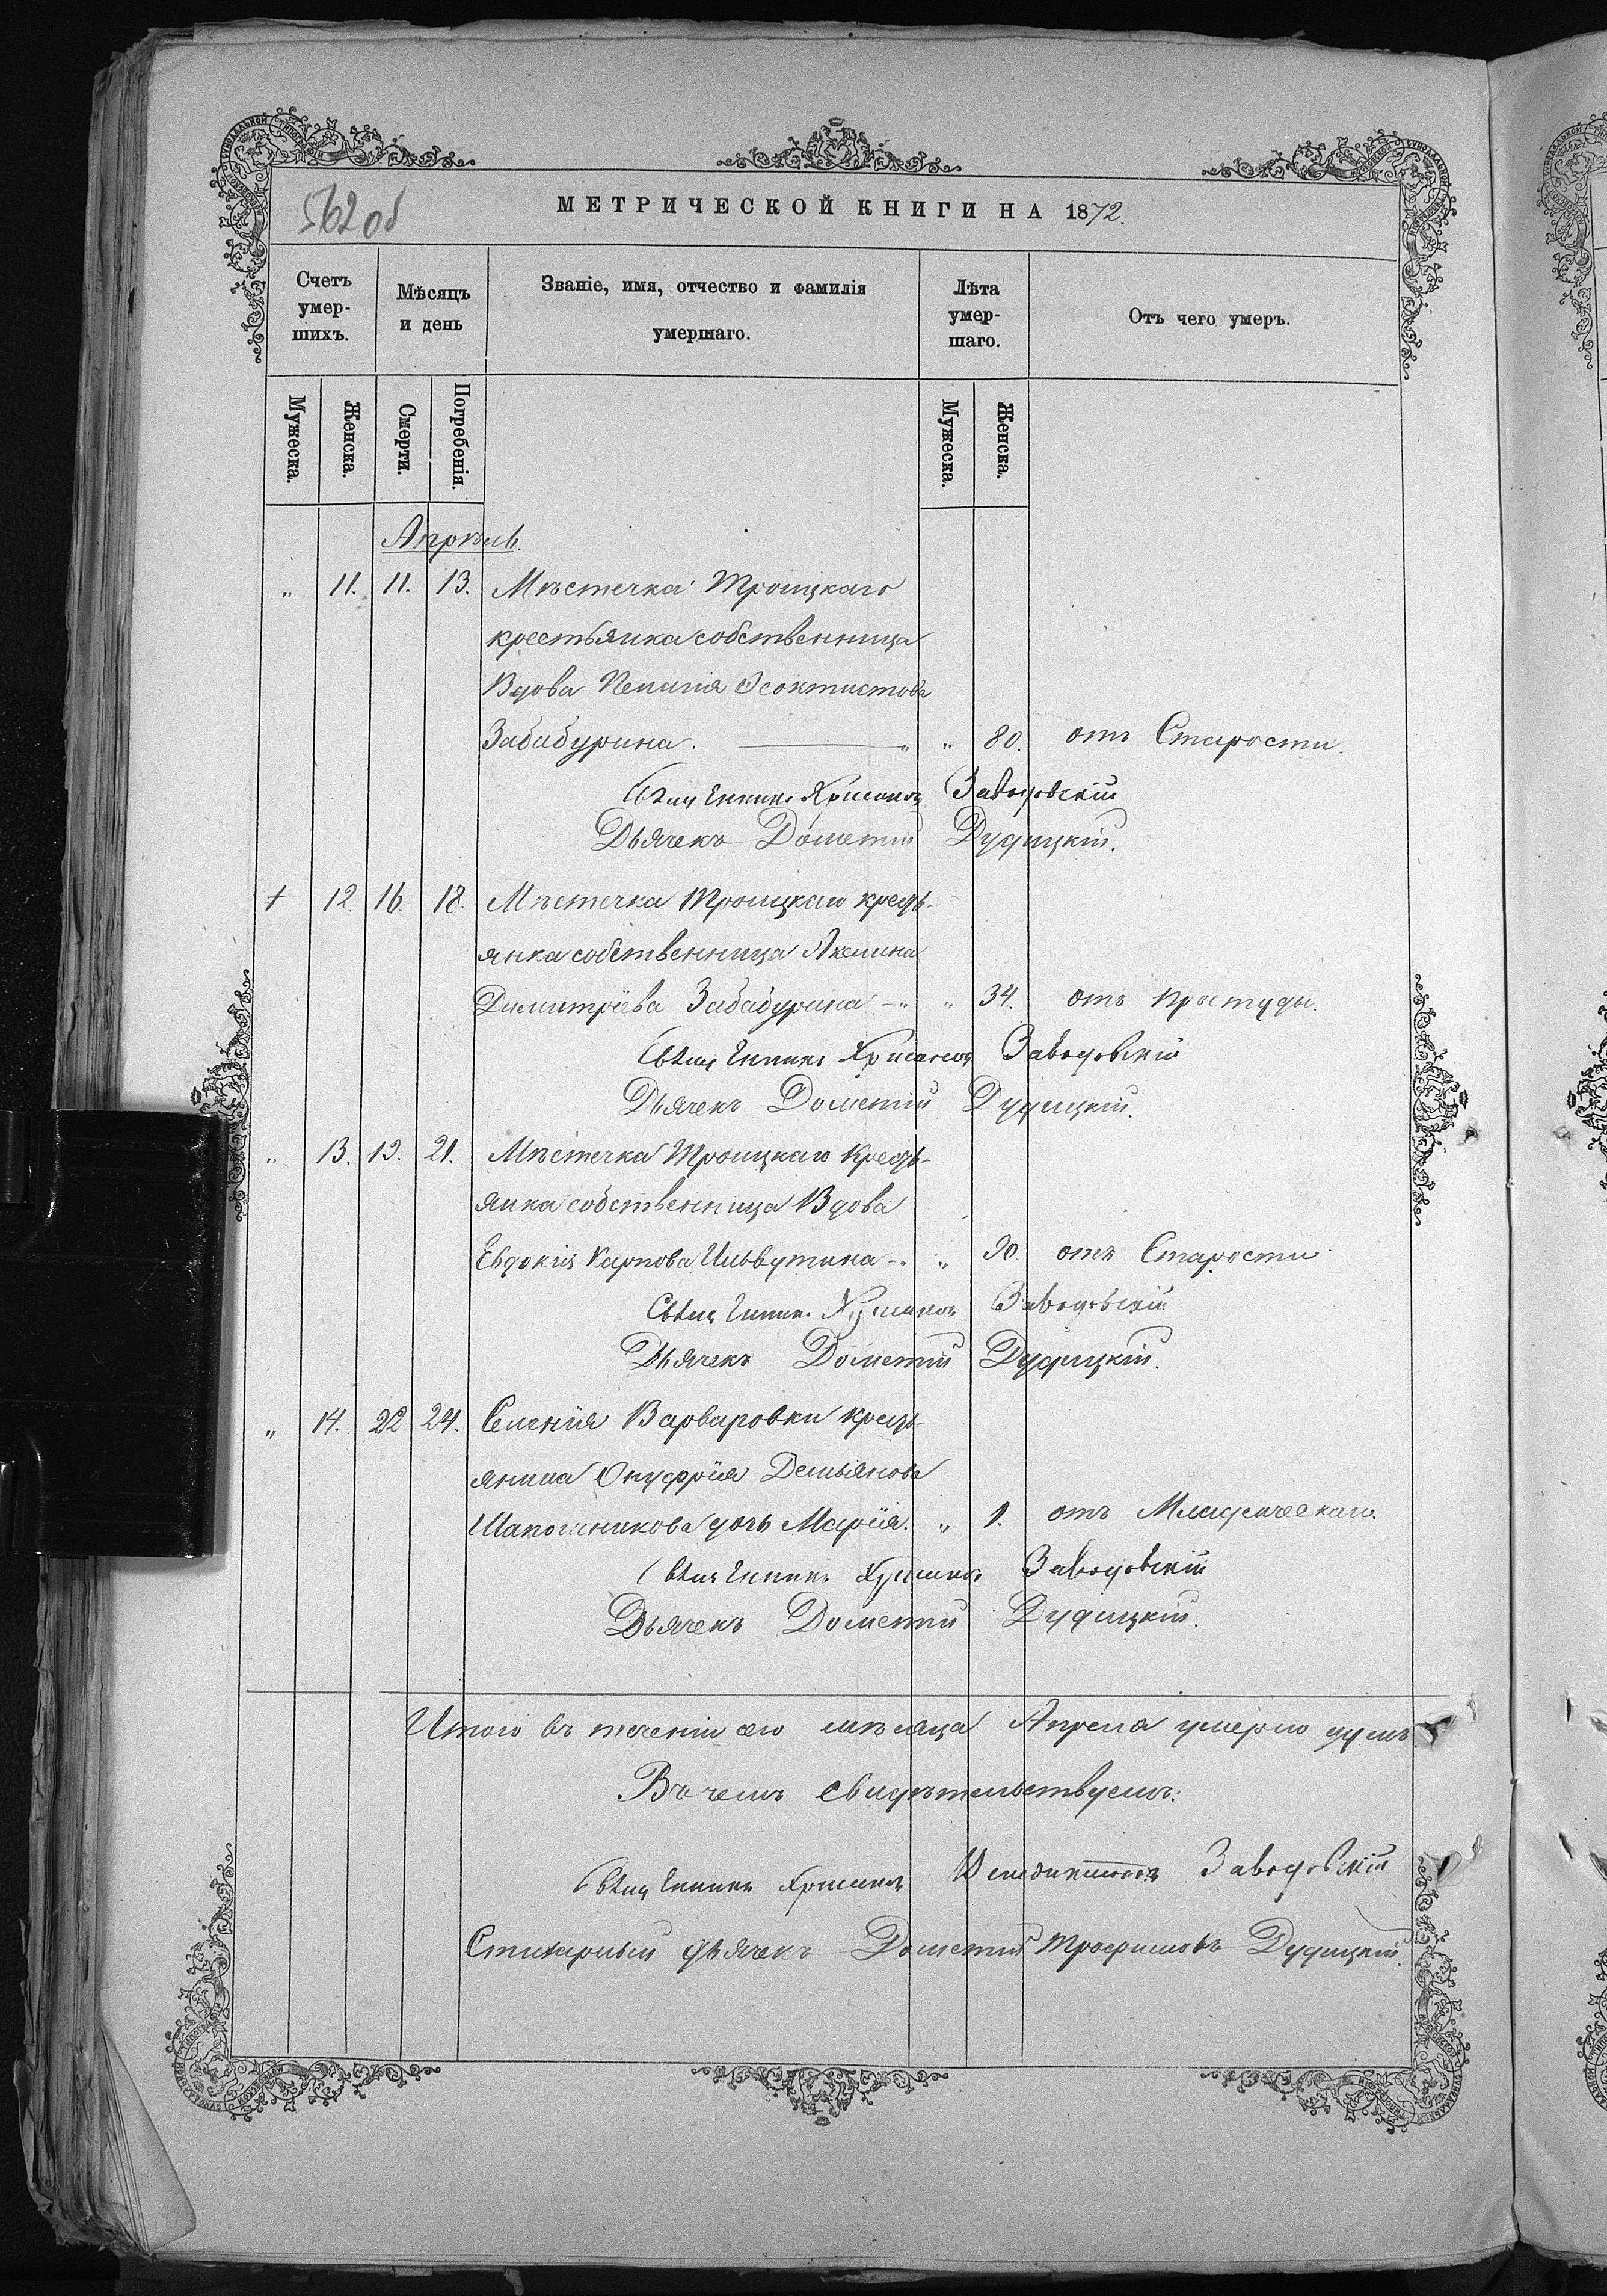 562 об
МЕТРИЧЕСКОЙ КНИГИ НА 1872.
Счетъ умершихъ.
Мѣсяцъ и день
Званіе, имя, отчество и фамилія умершаго.
Лѣта умершаго.
Отъ чего умеръ.
Мужеска.
Женска.
Смерти.
Погребенія.
Мужеска.
Женска.
Апрѣль.
„ 11. 11. 13. Мѣстечка Троицкаго
крестьянка собственница
Вдова Пелагія Ѳеоктистова
Забабурина. — „ „ 80. отъ Старости.
Завадовскій
Дьячекъ Дометій Дудицкій.
12. 16. 18. Мѣстечка Троицкаго кресть-
янка собственница Акелина
Димитріева Забабурина — „ „ 34. отъ простуды.
Завадовскій
Дьячекъ Дометій Дудицкій.
„ 13. 19. 21. Мѣстечка Троицкаго Кресть-
янка собственница Вдова
Евдокія Карпова — „ „ 90. отъ Старости
Завадовскій
Дьячекъ Дометій Дудицкій.
„ 14. 22 24. Селенія Варваровки кресть-
янина Онуфрія Демьянова
Шапошникова дочь Марія. „ 1. отъ Младенческаго.
Завадовскій
Дьячекъ Дометій Дудицкій.
Итого въ теченіи сего мѣсяца Апреля умерло душъ
Въ чемъ свидѣтельствуемъ:
Завадовскій
Стихарный дьячекъ Дометій Трофимовъ Дудицкій.